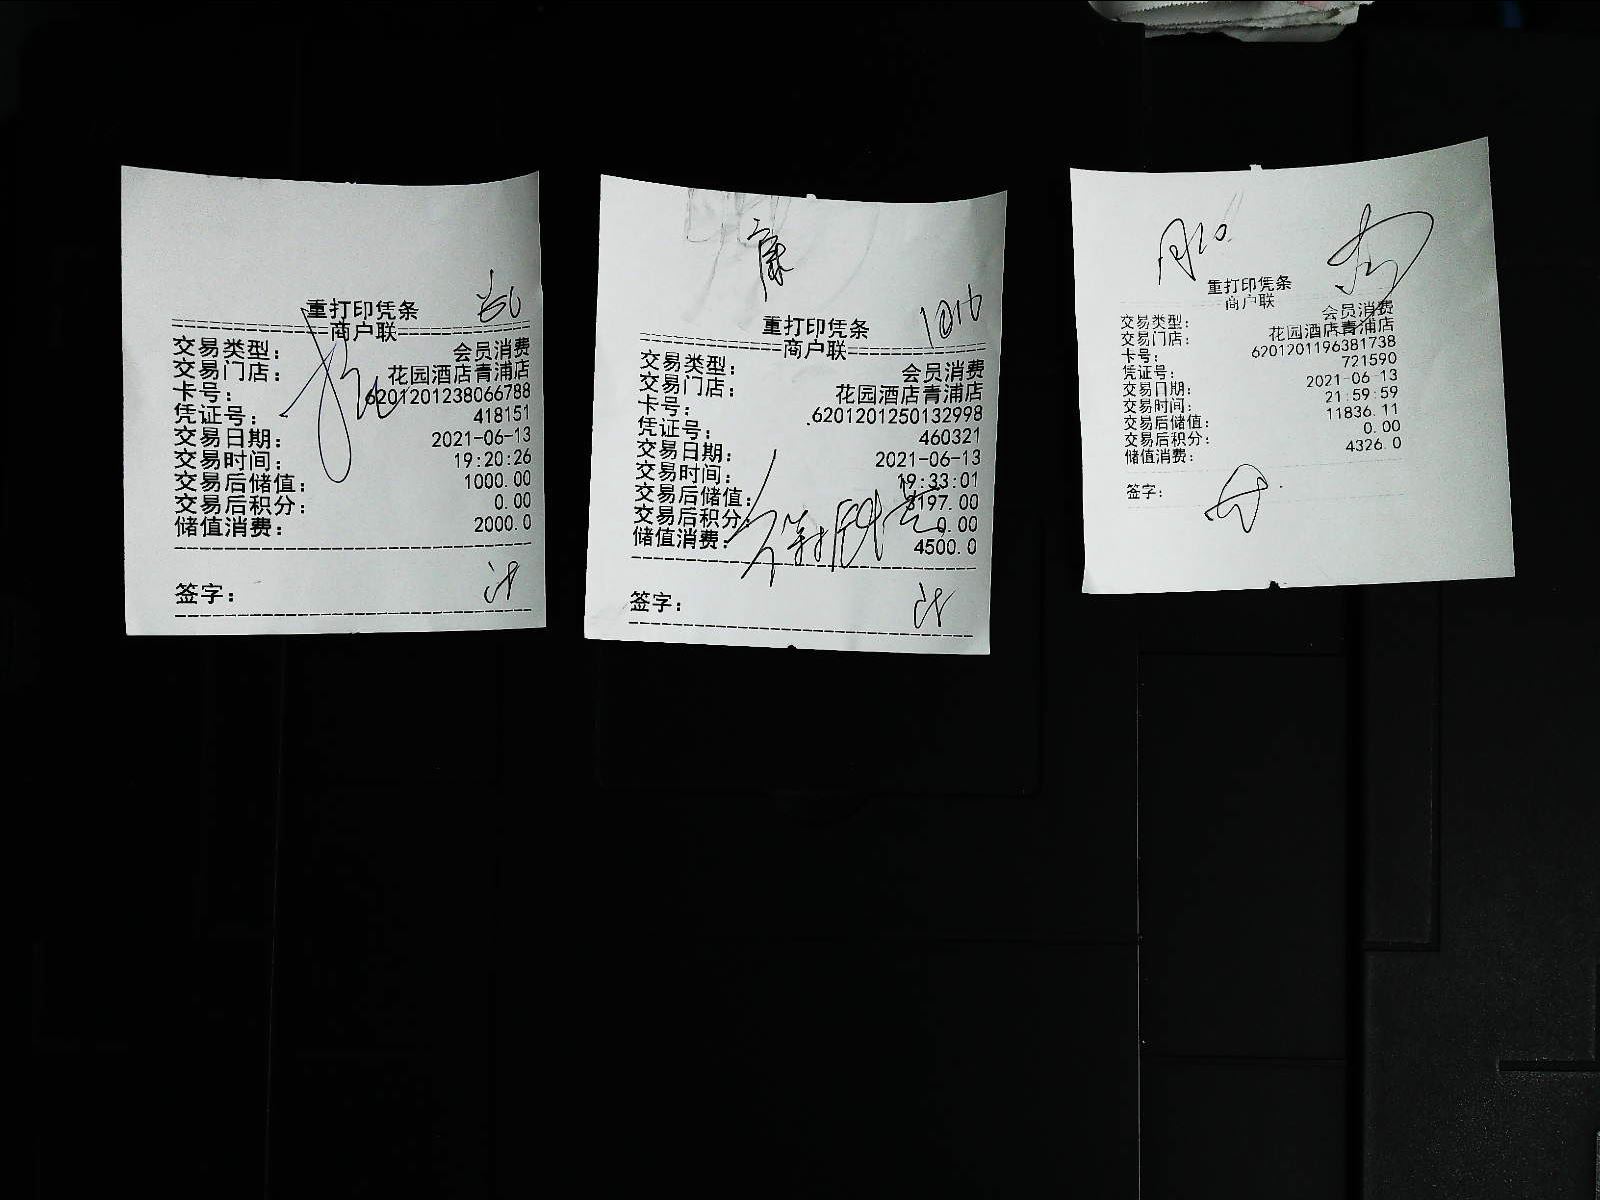 重打印凭条
商户联
交易类型： 会员消费
交易门店： 花园酒店青浦店
卡号： 6201201238066788
凭证号： 418151
交易日期： 2021-06-13
交易时间： 19:20:26
交易后储值： 1000.00
交易后积分： 0.00
储值消费： 2000.0
签字：
康
1016
重打印凭条
商户联
交易类型： 会员消费
交易门店： 花园酒店青浦店
卡号： 6201201250132998
凭证号： 460321
交易日期： 2021-06-13
交易时间： 19:33:01
交易后储值： 197.00
交易后积分： 0.00
储值消费： 4500.0
签字：
重打印凭条
商户联
交易类型： 会员消费
交易门店： 花园酒店青浦店
卡号： 6201201196381738
凭证号： 721590
交易日期： 2021-06-13
交易时间： 21:59:59
交易后储值： 11836.11
交易后积分： 0.00
储值消费： 4326.0
签字：